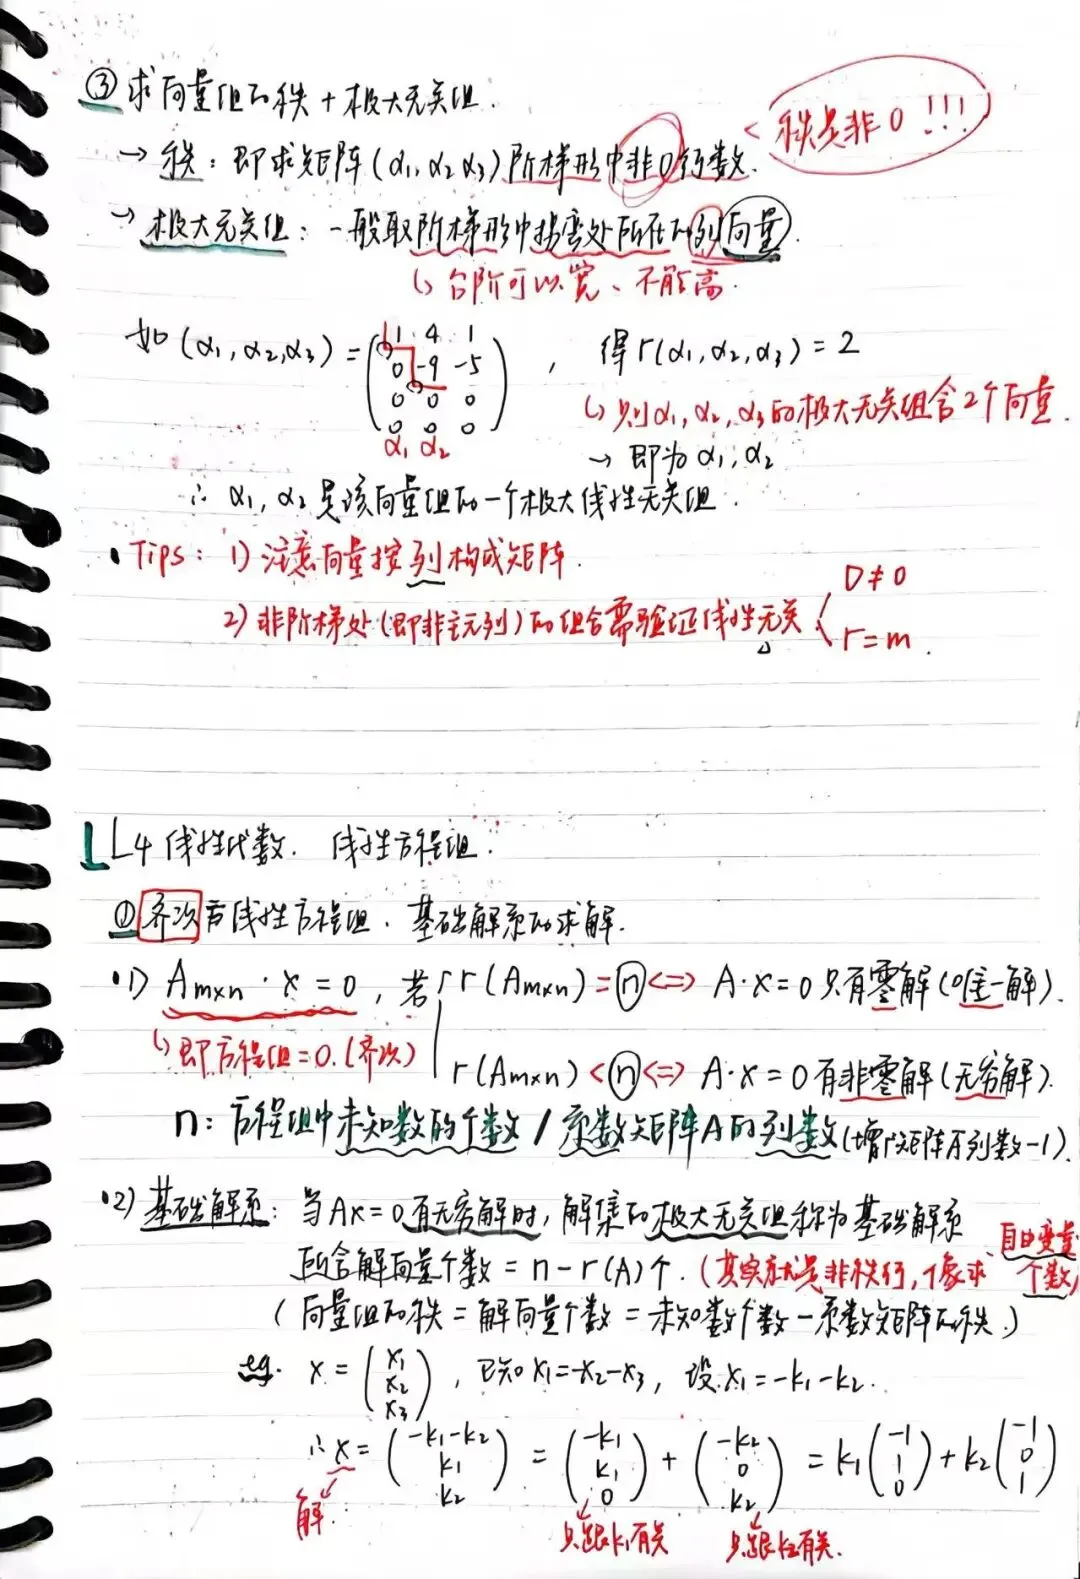 ③ 求向量组的秩 + 极大无关组.
< 秩是非0!!!
→ 秩: 即求矩阵(α₁, α₂ α₃)阶梯形中非0行数.
→ 极大无关组: 一般取阶梯形中拐弯处所在的列向量.
↳ 台阶可以宽、不能高.
如 (α₁, α₂, α₃) = (1 4 1
0 -9 -5
0 0 0
0 0 0) , 得 r(α₁, α₂, α₃) = 2
α₁ α₂
↳ 则α₁, α₂, α₃的极大无关组含2个向量.
→ 即为 α₁, α₂
∴ α₁, α₂ 是该向量组的一个极大线性无关组.
• Tips: 1) 注意向量按列构成矩阵.
2) 非阶梯处(即非主元列)的组合需验证线性无关 < D ≠ 0
r = m.
L4 线性代数. 线性方程组.
① 齐次线性方程组. 基础解系的求解.
• 1) Aₘₓₙ · x = 0, 若 r(Aₘₓₙ) = n <=> A·x = 0 只有零解(唯一解).
↳ 即方程组=0.(齐次)
r(Aₘₓₙ) < n <=> A·x = 0 有非零解(无穷解).
n: 方程组中未知数的个数 / 系数矩阵A的列数(增广矩阵的列数-1).
• 2) 基础解系: 当Ax=0有无穷解时, 解集的极大无关组称为基础解系
所含解向量个数 = n - r(A)个. (其实就是非秩行, 个像求自由变量个数)
(向量组的秩 = 解向量个数 = 未知数个数 - 系数矩阵的秩.)
eg. x = (x₁
x₂
x₃), 已知 x₁=-x₂-x₃, 设 x₁=-k₁-k₂.
∴ x = (-k₁-k₂
k₁
k₂) = (-k₁
k₁
0) + (-k₂
0
k₂) = k₁(-1
1
0) + k₂(-1
0
1)
解. 只跟k₁有关 只跟k₂有关.